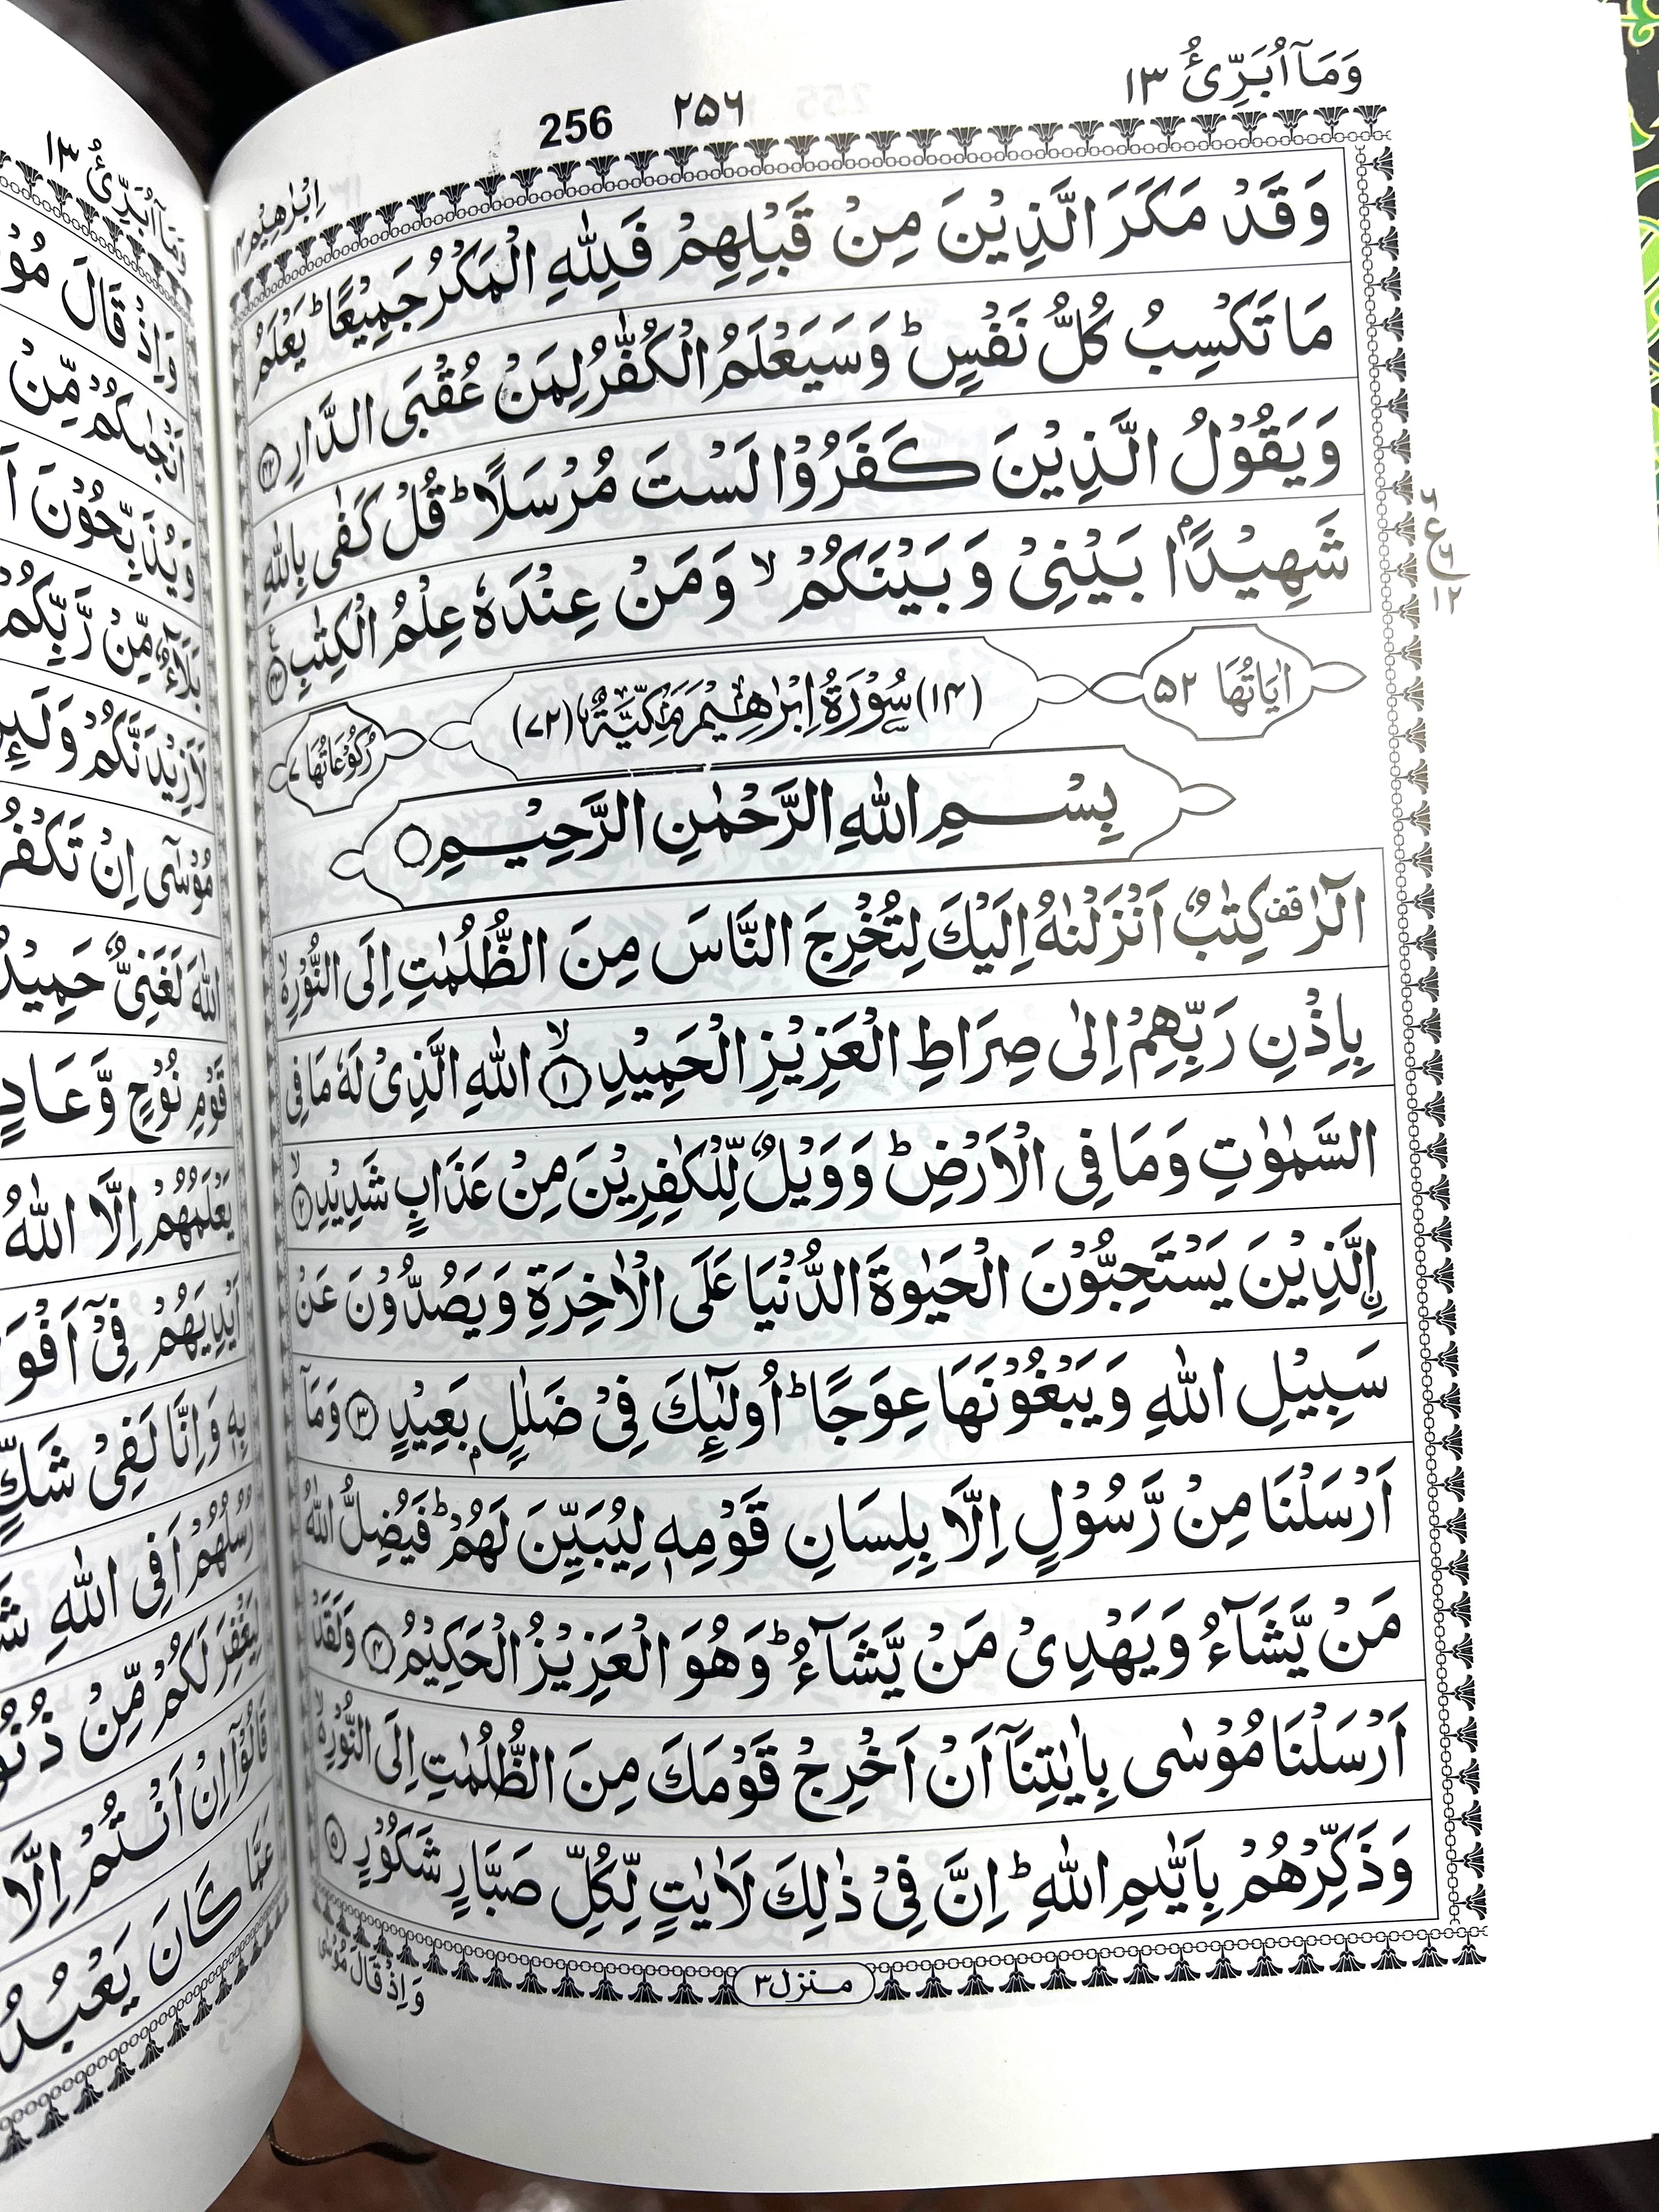 وَمَآ اُبَرِّئُ ١٣
٢٥٦
256
اِبْرٰهِيْم ١٤
وَقَدْ مَكَرَ الَّذِيْنَ مِنْ قَبْلِهِمْ فَلِلّٰهِ الْمَكْرُ جَمِيْعًا ؕ يَعْلَمُ
مَا تَكْسِبُ كُلُّ نَفْسٍ ؕ وَسَيَعْلَمُ الْكُفّٰرُ لِمَنْ عُقْبَى الدَّارِ ﴿٤٢﴾
وَيَقُوْلُ الَّذِيْنَ كَفَرُوْا لَسْتَ مُرْسَلًا ؕ قُلْ كَفٰى بِاللّٰهِ
شَهِيْدًۢا بَيْنِيْ وَبَيْنَكُمْ ۙ وَمَنْ عِنْدَهٗ عِلْمُ الْكِتٰبِ ﴿٤٣﴾
ع
١٢
اٰيَاتُهَا ٥٢
(١٤) سُوْرَةُ اِبْرٰهِيْمَ مَكِّيَّةٌ (٧٢)
رُكُوْعَاتُهَا ٧
بِسْمِ اللّٰهِ الرَّحْمٰنِ الرَّحِيْمِ
الٓرٰ قف كِتٰبٌ اَنْزَلْنٰهُ اِلَيْكَ لِتُخْرِجَ النَّاسَ مِنَ الظُّلُمٰتِ اِلَى النُّوْرِ ۙ
بِاِذْنِ رَبِّهِمْ اِلٰى صِرَاطِ الْعَزِيْزِ الْحَمِيْدِ ۙ﴿١﴾ اللّٰهِ الَّذِيْ لَهٗ مَا فِي
السَّمٰوٰتِ وَمَا فِي الْاَرْضِ ؕ وَوَيْلٌ لِّلْكٰفِرِيْنَ مِنْ عَذَابٍ شَدِيْدِ ۙ﴿٢﴾
نِ الَّذِيْنَ يَسْتَحِبُّوْنَ الْحَيٰوةَ الدُّنْيَا عَلَى الْاٰخِرَةِ وَيَصُدُّوْنَ عَنْ
سَبِيْلِ اللّٰهِ وَيَبْغُوْنَهَا عِوَجًا ؕ اُولٰٓئِكَ فِيْ ضَلٰلٍۭ بَعِيْدٍ ﴿٣﴾ وَمَآ
اَرْسَلْنَا مِنْ رَّسُوْلٍ اِلَّا بِلِسَانِ قَوْمِهٖ لِيُبَيِّنَ لَهُمْ ؕ فَيُضِلُّ اللّٰهُ
مَنْ يَّشَآءُ وَيَهْدِيْ مَنْ يَّشَآءُ ؕ وَهُوَ الْعَزِيْزُ الْحَكِيْمُ ﴿٤﴾ وَلَقَدْ
اَرْسَلْنَا مُوْسٰى بِاٰيٰتِنَآ اَنْ اَخْرِجْ قَوْمَكَ مِنَ الظُّلُمٰتِ اِلَى النُّوْرِ ۙ
وَذَكِّرْهُمْ بِاَيّٰىمِ اللّٰهِ ؕ اِنَّ فِيْ ذٰلِكَ لَاٰيٰتٍ لِّكُلِّ صَبَّارٍ شَكُوْرٍ ﴿٥﴾
منزل ٣
وَاِذْ قَالَ مُوْسٰى
وَمَآ اُبَرِّئُ ١٣
وَاِذْ قَالَ
اَنْجٰىكُمْ مِّنْ
وَيُذَبِّحُوْنَ
بَلَآءٌ مِّنْ رَّبِّكُمْ
لَاَزِيْدَنَّكُمْ وَلَئِنْ
مُوْسٰٓى اِنْ تَكْفُرُ
اللّٰهَ لَغَنِيٌّ حَمِيْدٌ
قَوْمِ نُوْحٍ وَّعَادٍ
يَعْلَمُهُمْ اِلَّا اللّٰهُ
اَيْدِيَهُمْ فِيْٓ اَفْوَا
بِهٖ وَاِنَّا لَفِيْ شَكٍّ
رُسُلُهُمْ اَفِي اللّٰهِ
لِيَغْفِرَ لَكُمْ مِّنْ ذُنُو
قَالُوْٓا اِنْ اَنْتُمْ اِلَّا
عَمَّا كَانَ يَعْبُدُ